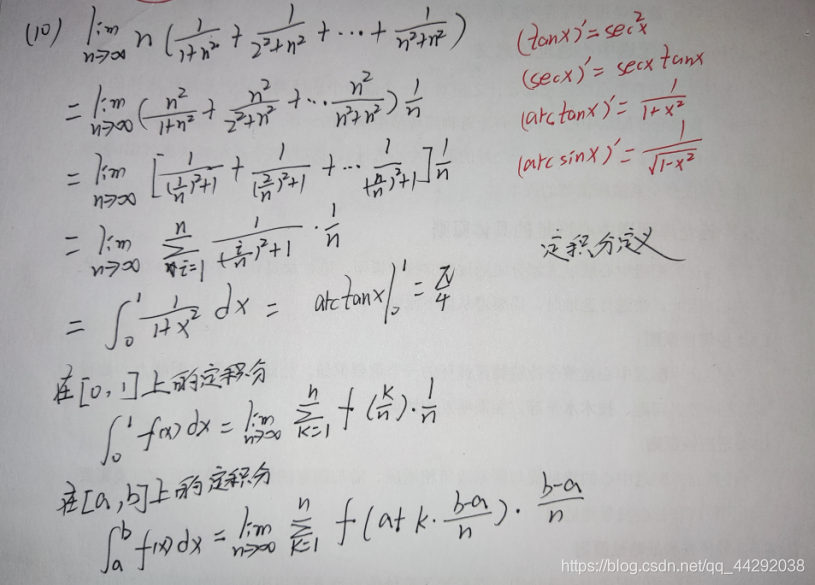 (10) lim n→∞ n ( 1/(1+n²) + 1/(2²+n²) + ⋯ + 1/(n²+n²) )
= lim n→∞ ( n²/(1+n²) + n²/(2²+n²) + ⋯ n²/(n²+n²) ) 1/n
= lim n→∞ [ 1/((1/n)²+1) + 1/((2/n)²+1) + ⋯ 1/((n/n)²+1) ] 1/n
= lim n→∞ ∑ i=1 n 1/((i/n)²+1) · 1/n
= ∫₀¹ 1/(1+x²) dx = arctanx |₀¹ = π/4
(tanx)′ = sec²x
(secx)′ = secx tanx
(arctanx)′ = 1/(1+x²)
(arcsinx)′ = 1/√(1-x²)
定积分定义
在[0,1]上的定积分
∫₀¹ f(x) dx = lim n→∞ ∑ k=1 n f(k/n) · 1/n
在[a,b]上的定积分
∫ₐᵇ f(x) dx = lim n→∞ ∑ k=1 n f(a+k·(b-a)/n) · (b-a)/n
https://blog.csdn.net/qq_44292038